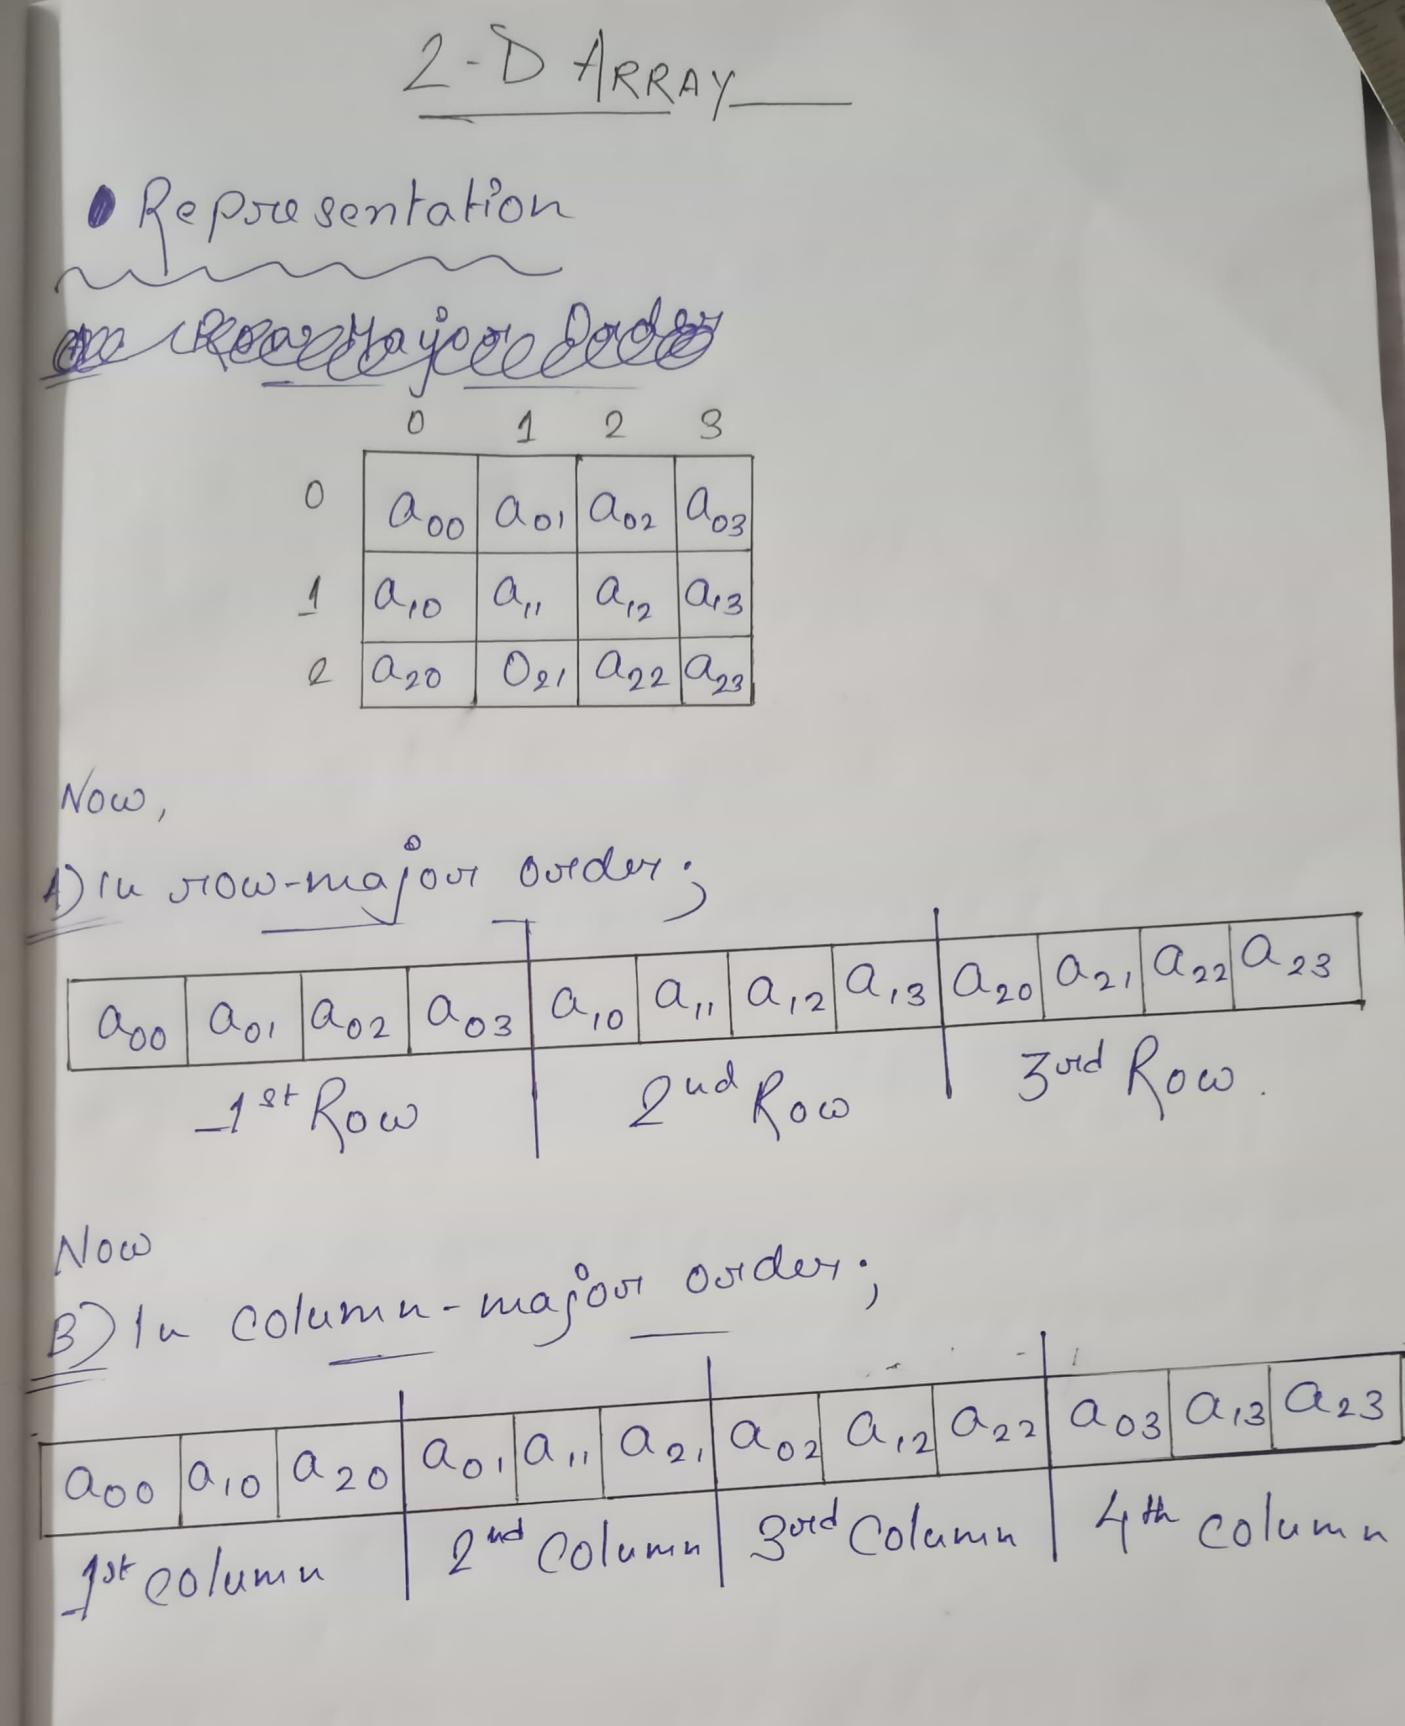 2-D ARRAY
• Representation
Row Major Order
0 1 2 3
0 a00 a01 a02 a03
1 a10 a11 a12 a13
2 a20 a21 a22 a23
Now,
A) In row-major order;
a00 a01 a02 a03 a10 a11 a12 a13 a20 a21 a22 a23
1st Row 2nd Row 3rd Row.
Now
B) In column-major order;
a00 a10 a20 a01 a11 a21 a02 a12 a22 a03 a13 a23
1st column 2nd column 3rd column 4th column